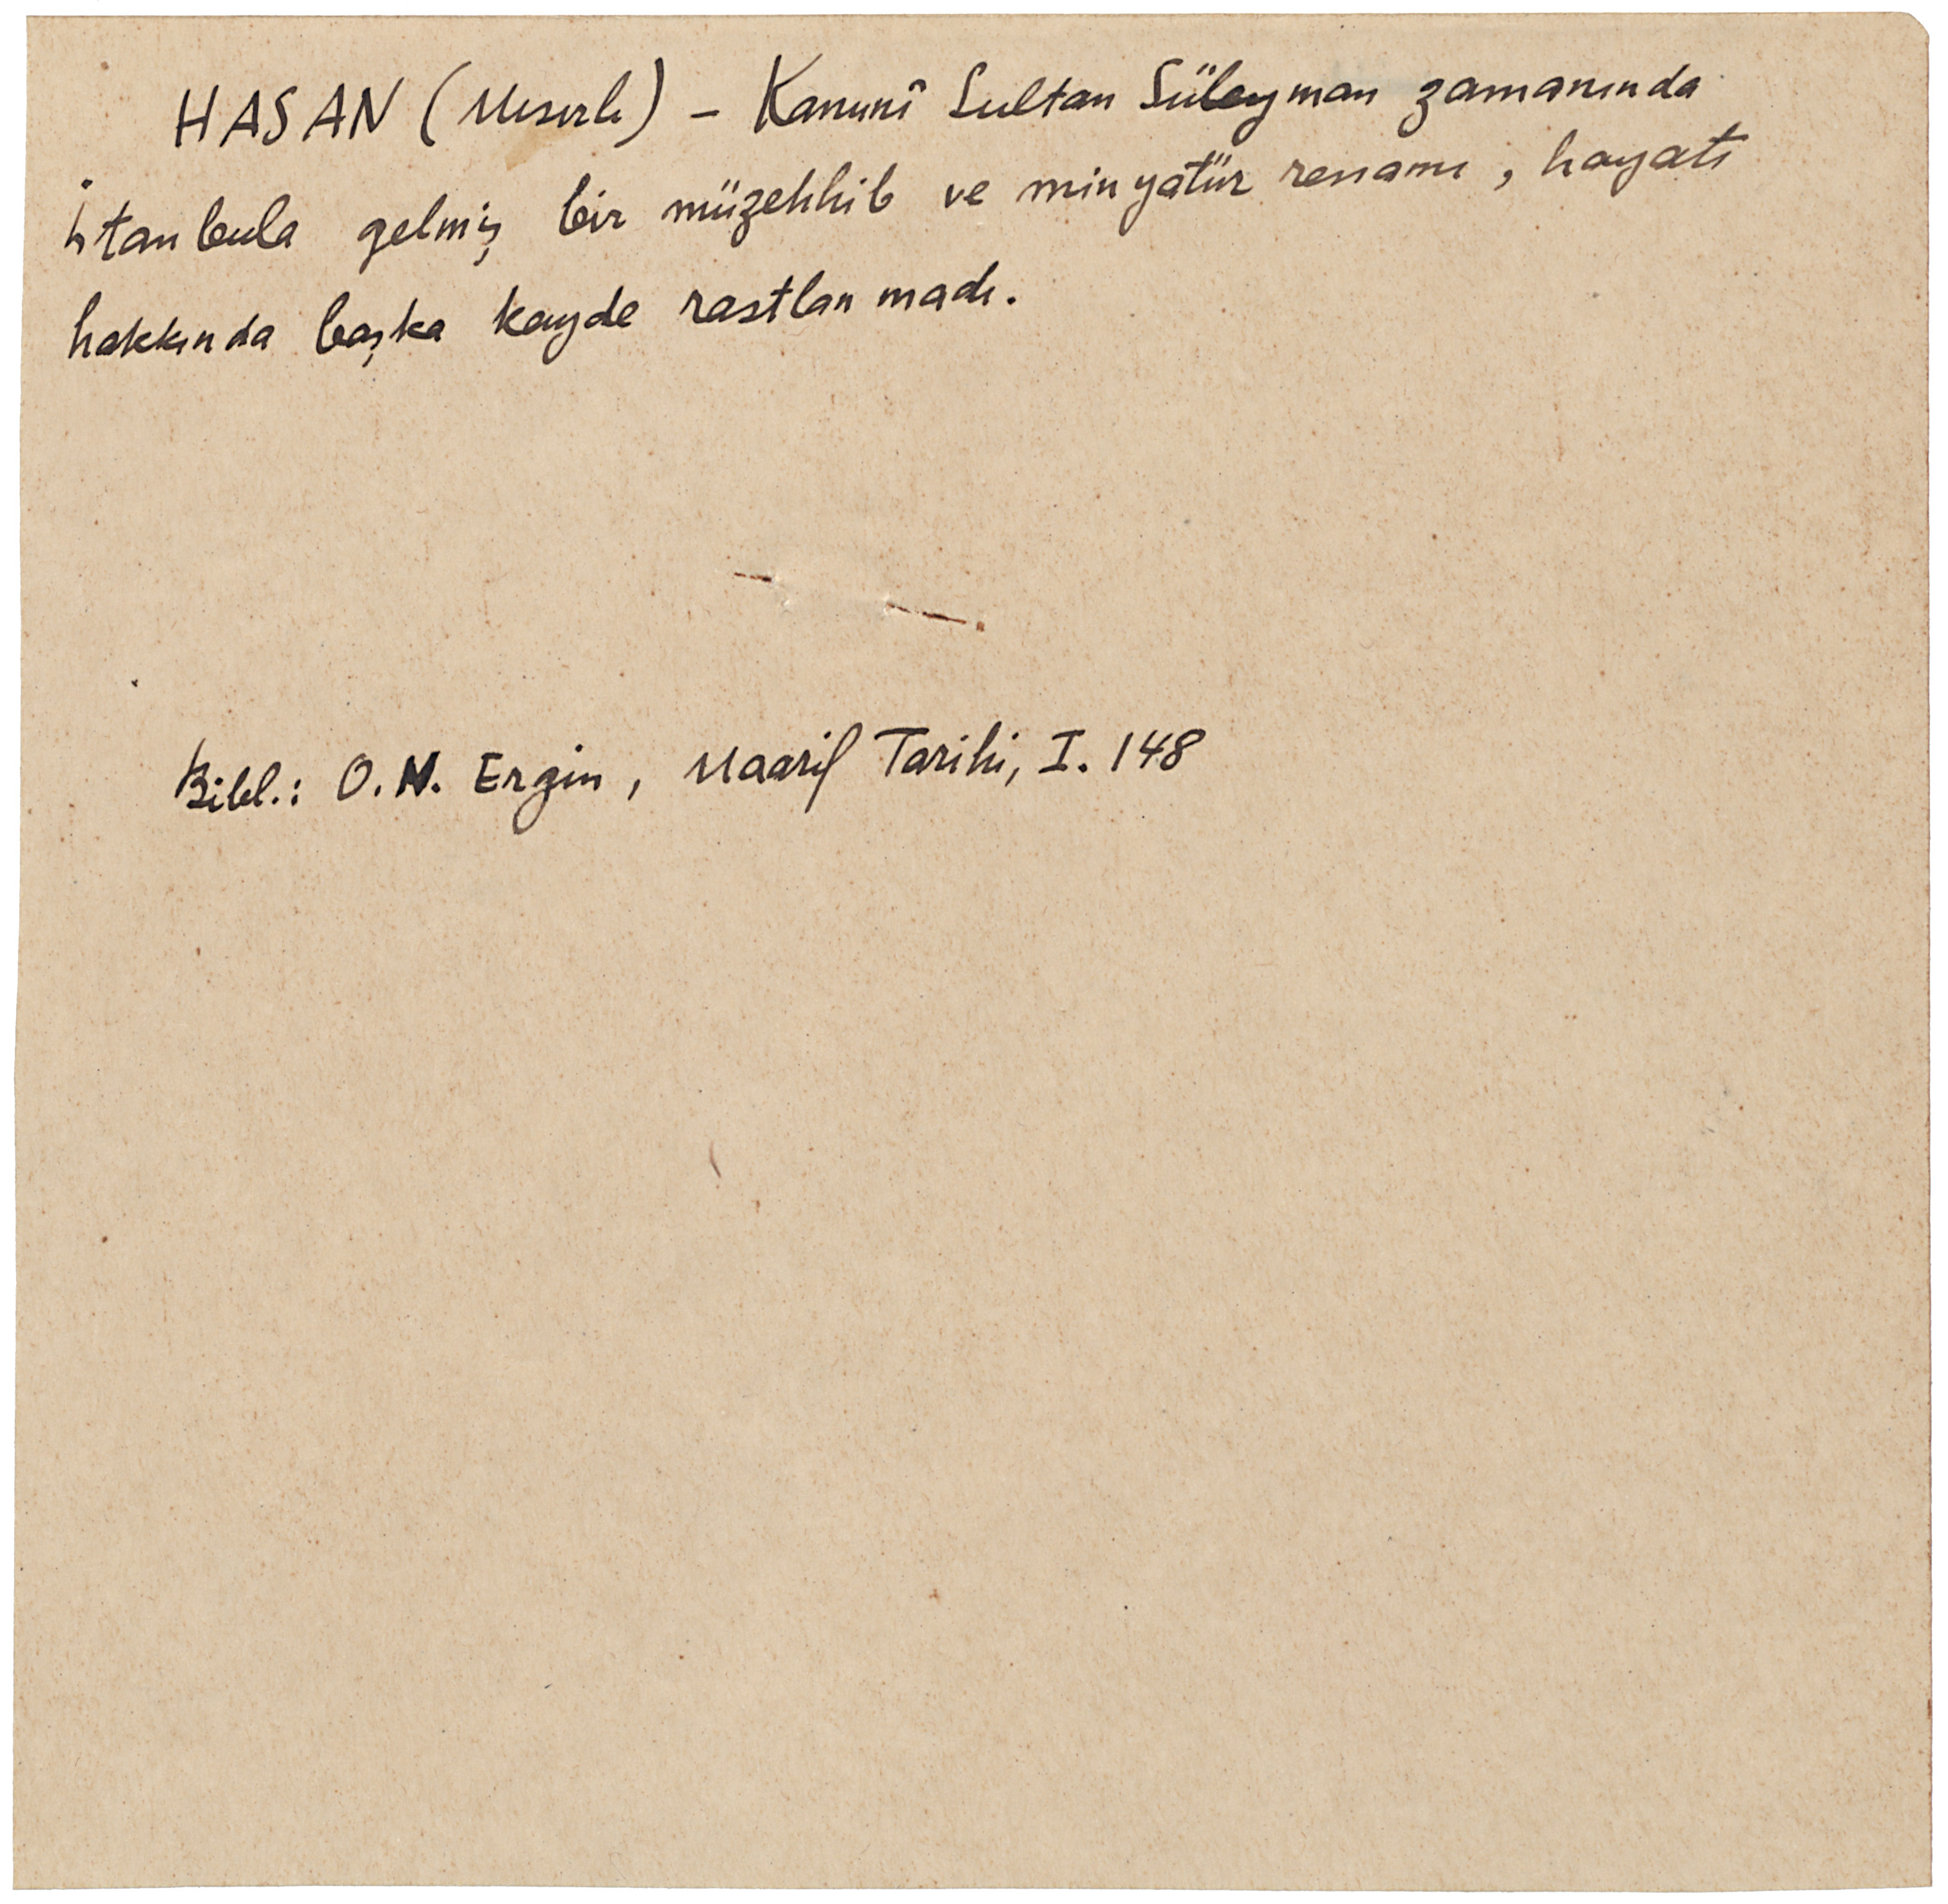 HASAN (Mısırlı) - Kanunî Sultan Süleyman zamanında
İstanbula gelmiş bir müzehhib ve minyatür ressamı, hayatı
hakkında başka kayde rastlanmadı.
Bibl.: O.N. Ergin, Maarif Tarihi, I. 148